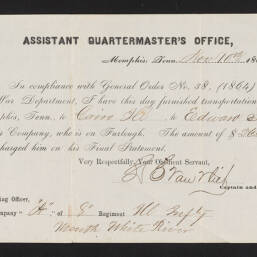 ASSISTANT QUARTERMASTER'S OFFICE,
Memphis, Tenn. Nov 10th 186
In compliance with General Order No. 38, (1864)
War Department, I have this day furnished transportation
phis, Tenn. to Cairo Ill to Edward
Company, who is on Furlough. The amount of $
charged him on his Final Statement.
Very Respectfully, Your Obedient Servant,
Captain and
ing Officer,
ompany "A" of 8" Regiment Ill Infty
Mouth White River